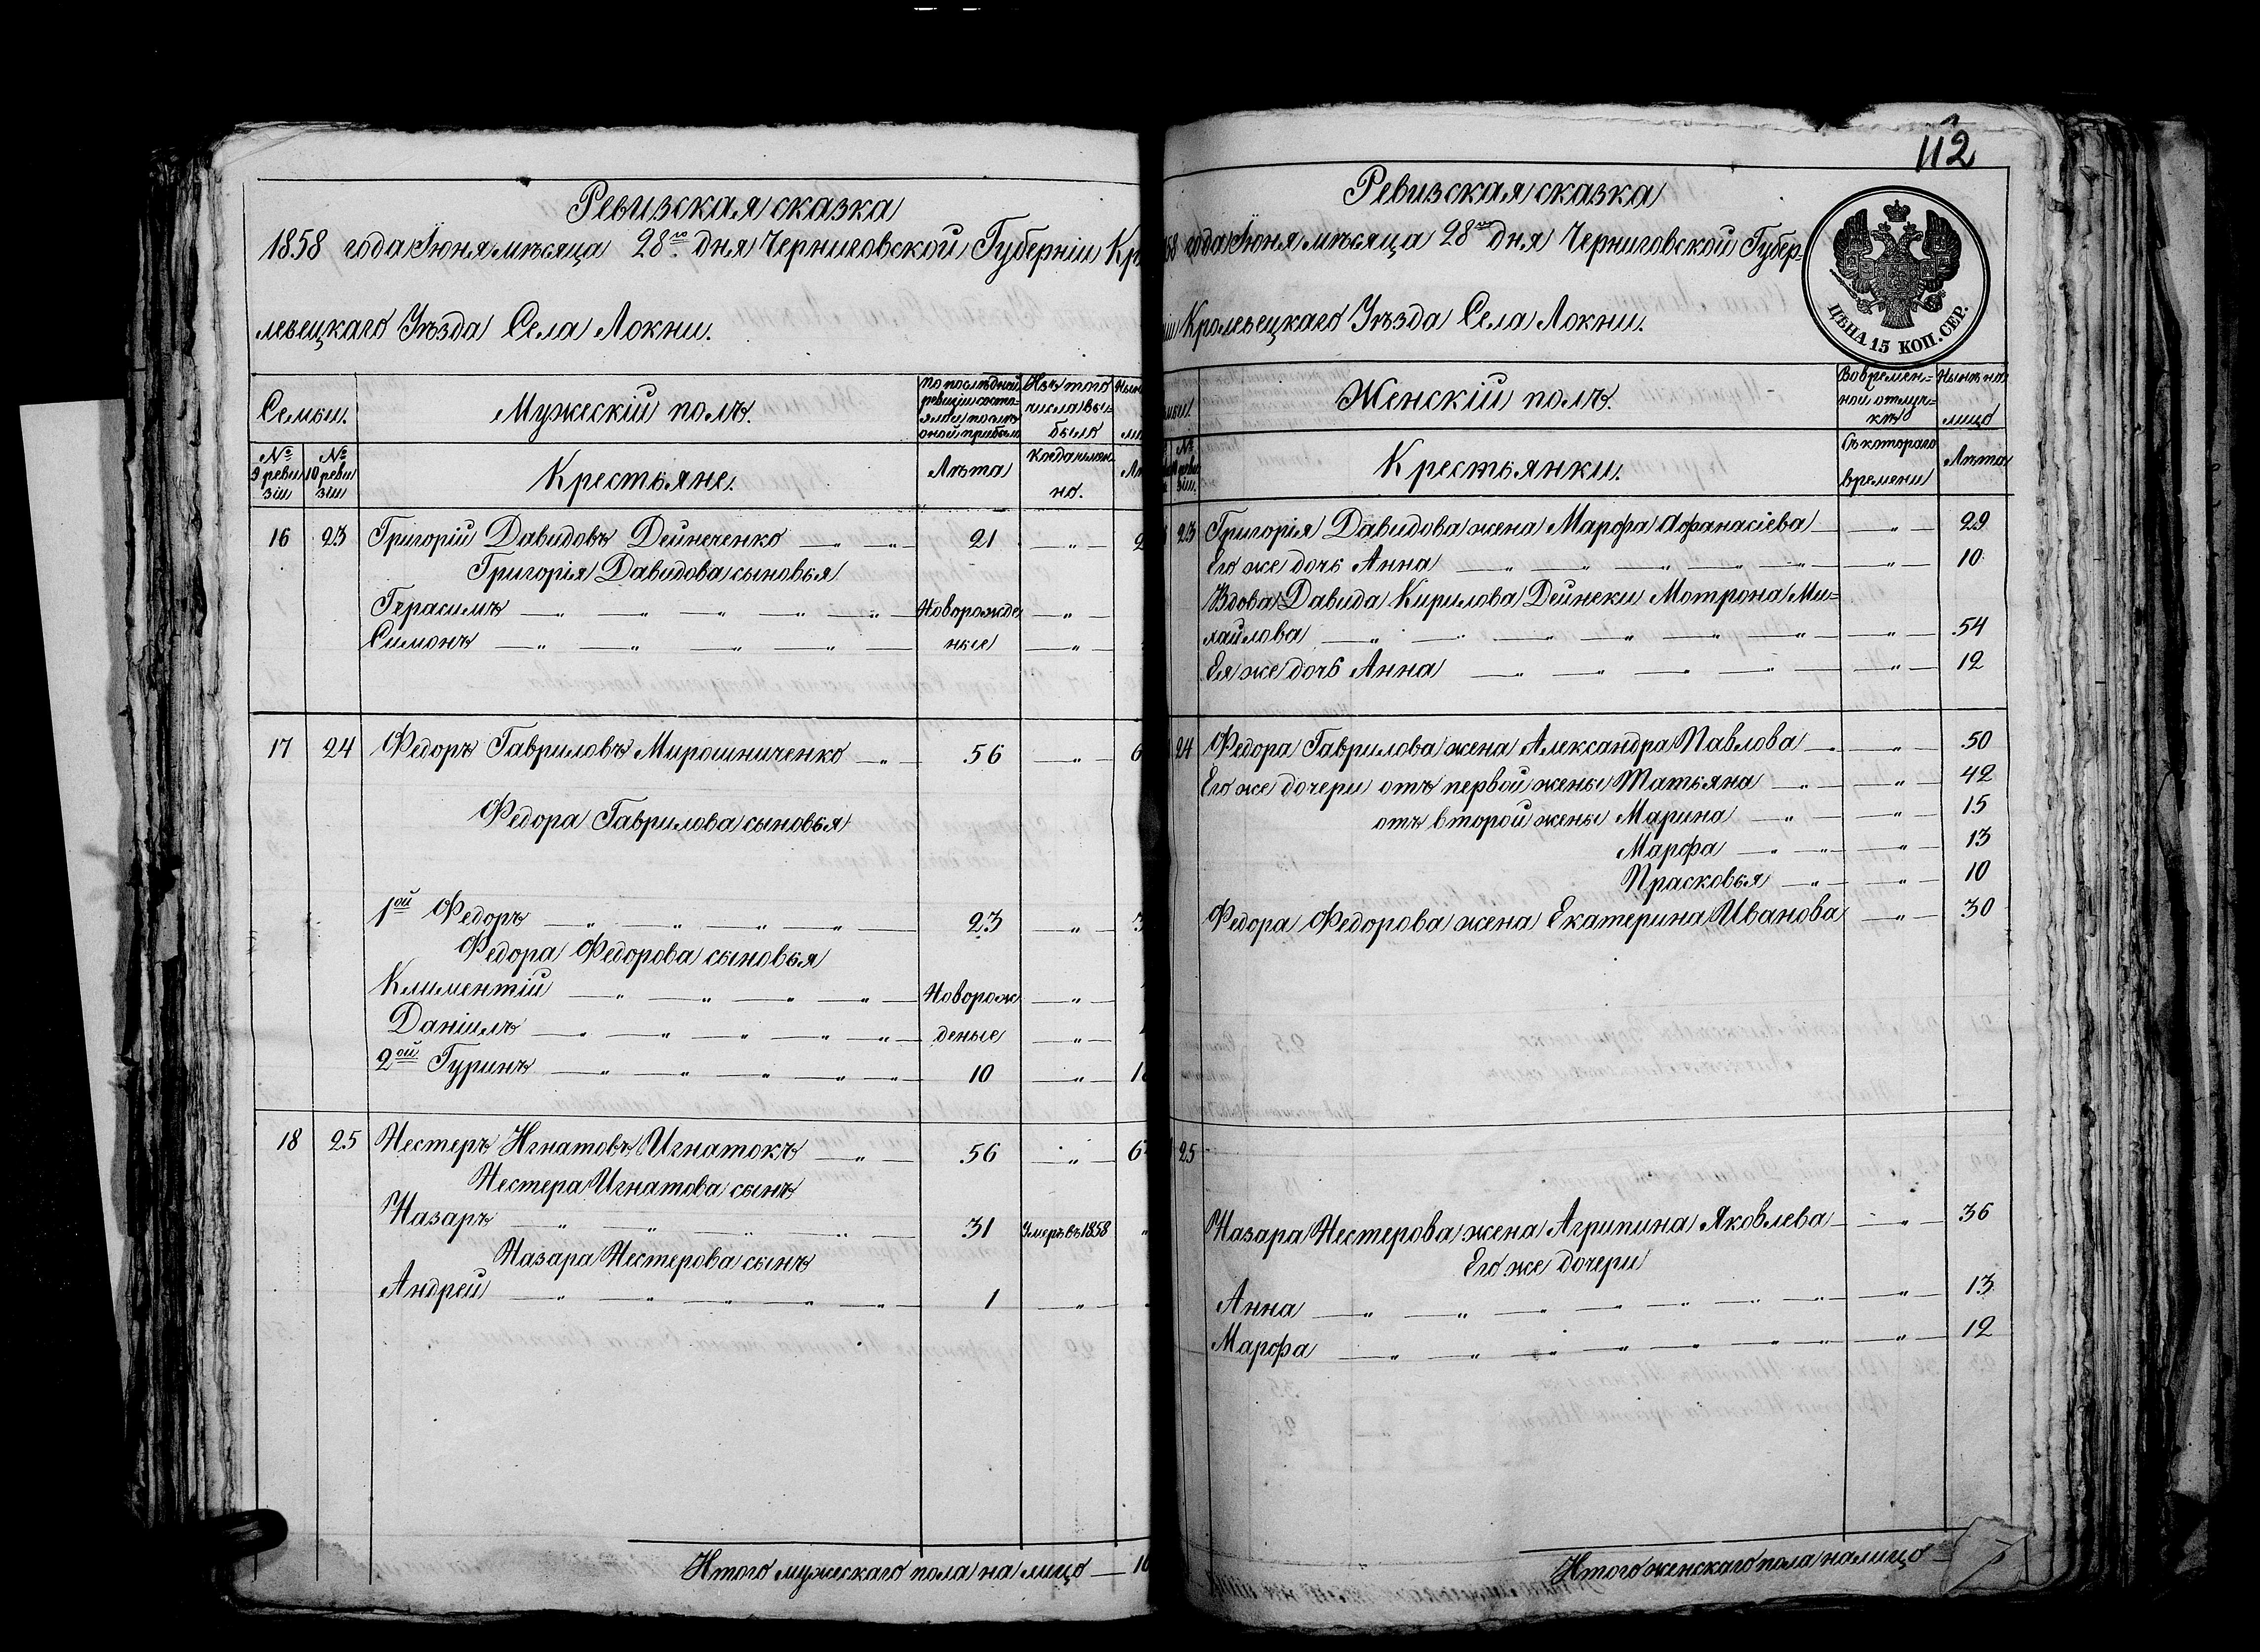 Ревизская сказка
1858 года Іюня мѣсяца 28го дня Черниговской Губерніи Кр
левецкаго Уѣзда Села Локни.
Семьи.
Мужескій полъ.
По послѣдней
ревизіи состо-
яло и послѣ
оной прибыло
Изъ того
числа вы-
было
№
9 реви
зіи
№
10 реви
зіи
Крестьяне.
Лѣта
Когда имен-
но.
16 23 Григорій Давидовъ Дейнеченко 21
Григорія Давидова сыновья
Герасимъ Новорожде
Симонъ ные
17 24 Федоръ Гавриловъ Мирошниченко 56
Федора Гаврилова сыновья
1ой Федоръ 23
Федора Федорова сыновья
Климентій Новорож
Даніилъ деные
2ой Гуринъ 10
18 25 Нестеръ Игнатовъ Игнатокъ 56
Нестера Игнатова сынъ
Назаръ 31 Умеръ въ 1858
Назара Нестерова сынъ
Андрей 1
Итого мужескаго пола на лицо
112
Ревизская сказка
года Іюня мѣсяца 28го дня Черниговской Губер-
ніи Кролевецкаго Уѣзда Села Локни.
ЦѢНА 15 КОП. СЕР.
Женскій полъ.
Во времен-
ной отлуч-
кѣ
Нынѣ на
лицо
Крестьянки.
Съ котораго
времени
Лѣта
23 Григорія Давидова жена Марфа Афанасіева 29
Его же дочь Анна 10
Вдова Давида Кирилова Дейнеки Мотрона Ми-
хайлова 54
Ея же дочь Анна 12
24 Федора Гаврилова жена Александра Павлова 50
Его же дочери отъ первой жены Татьяна 42
отъ второй жены Марина 15
Марфа 13
Прасковья 10
Федора Федорова жена Екатерина Иванова 30
25
Назара Нестерова жена Агрипина Яковлева 36
Его же дочери
Анна 13
Марфа 12
Итого женскаго пола налицо